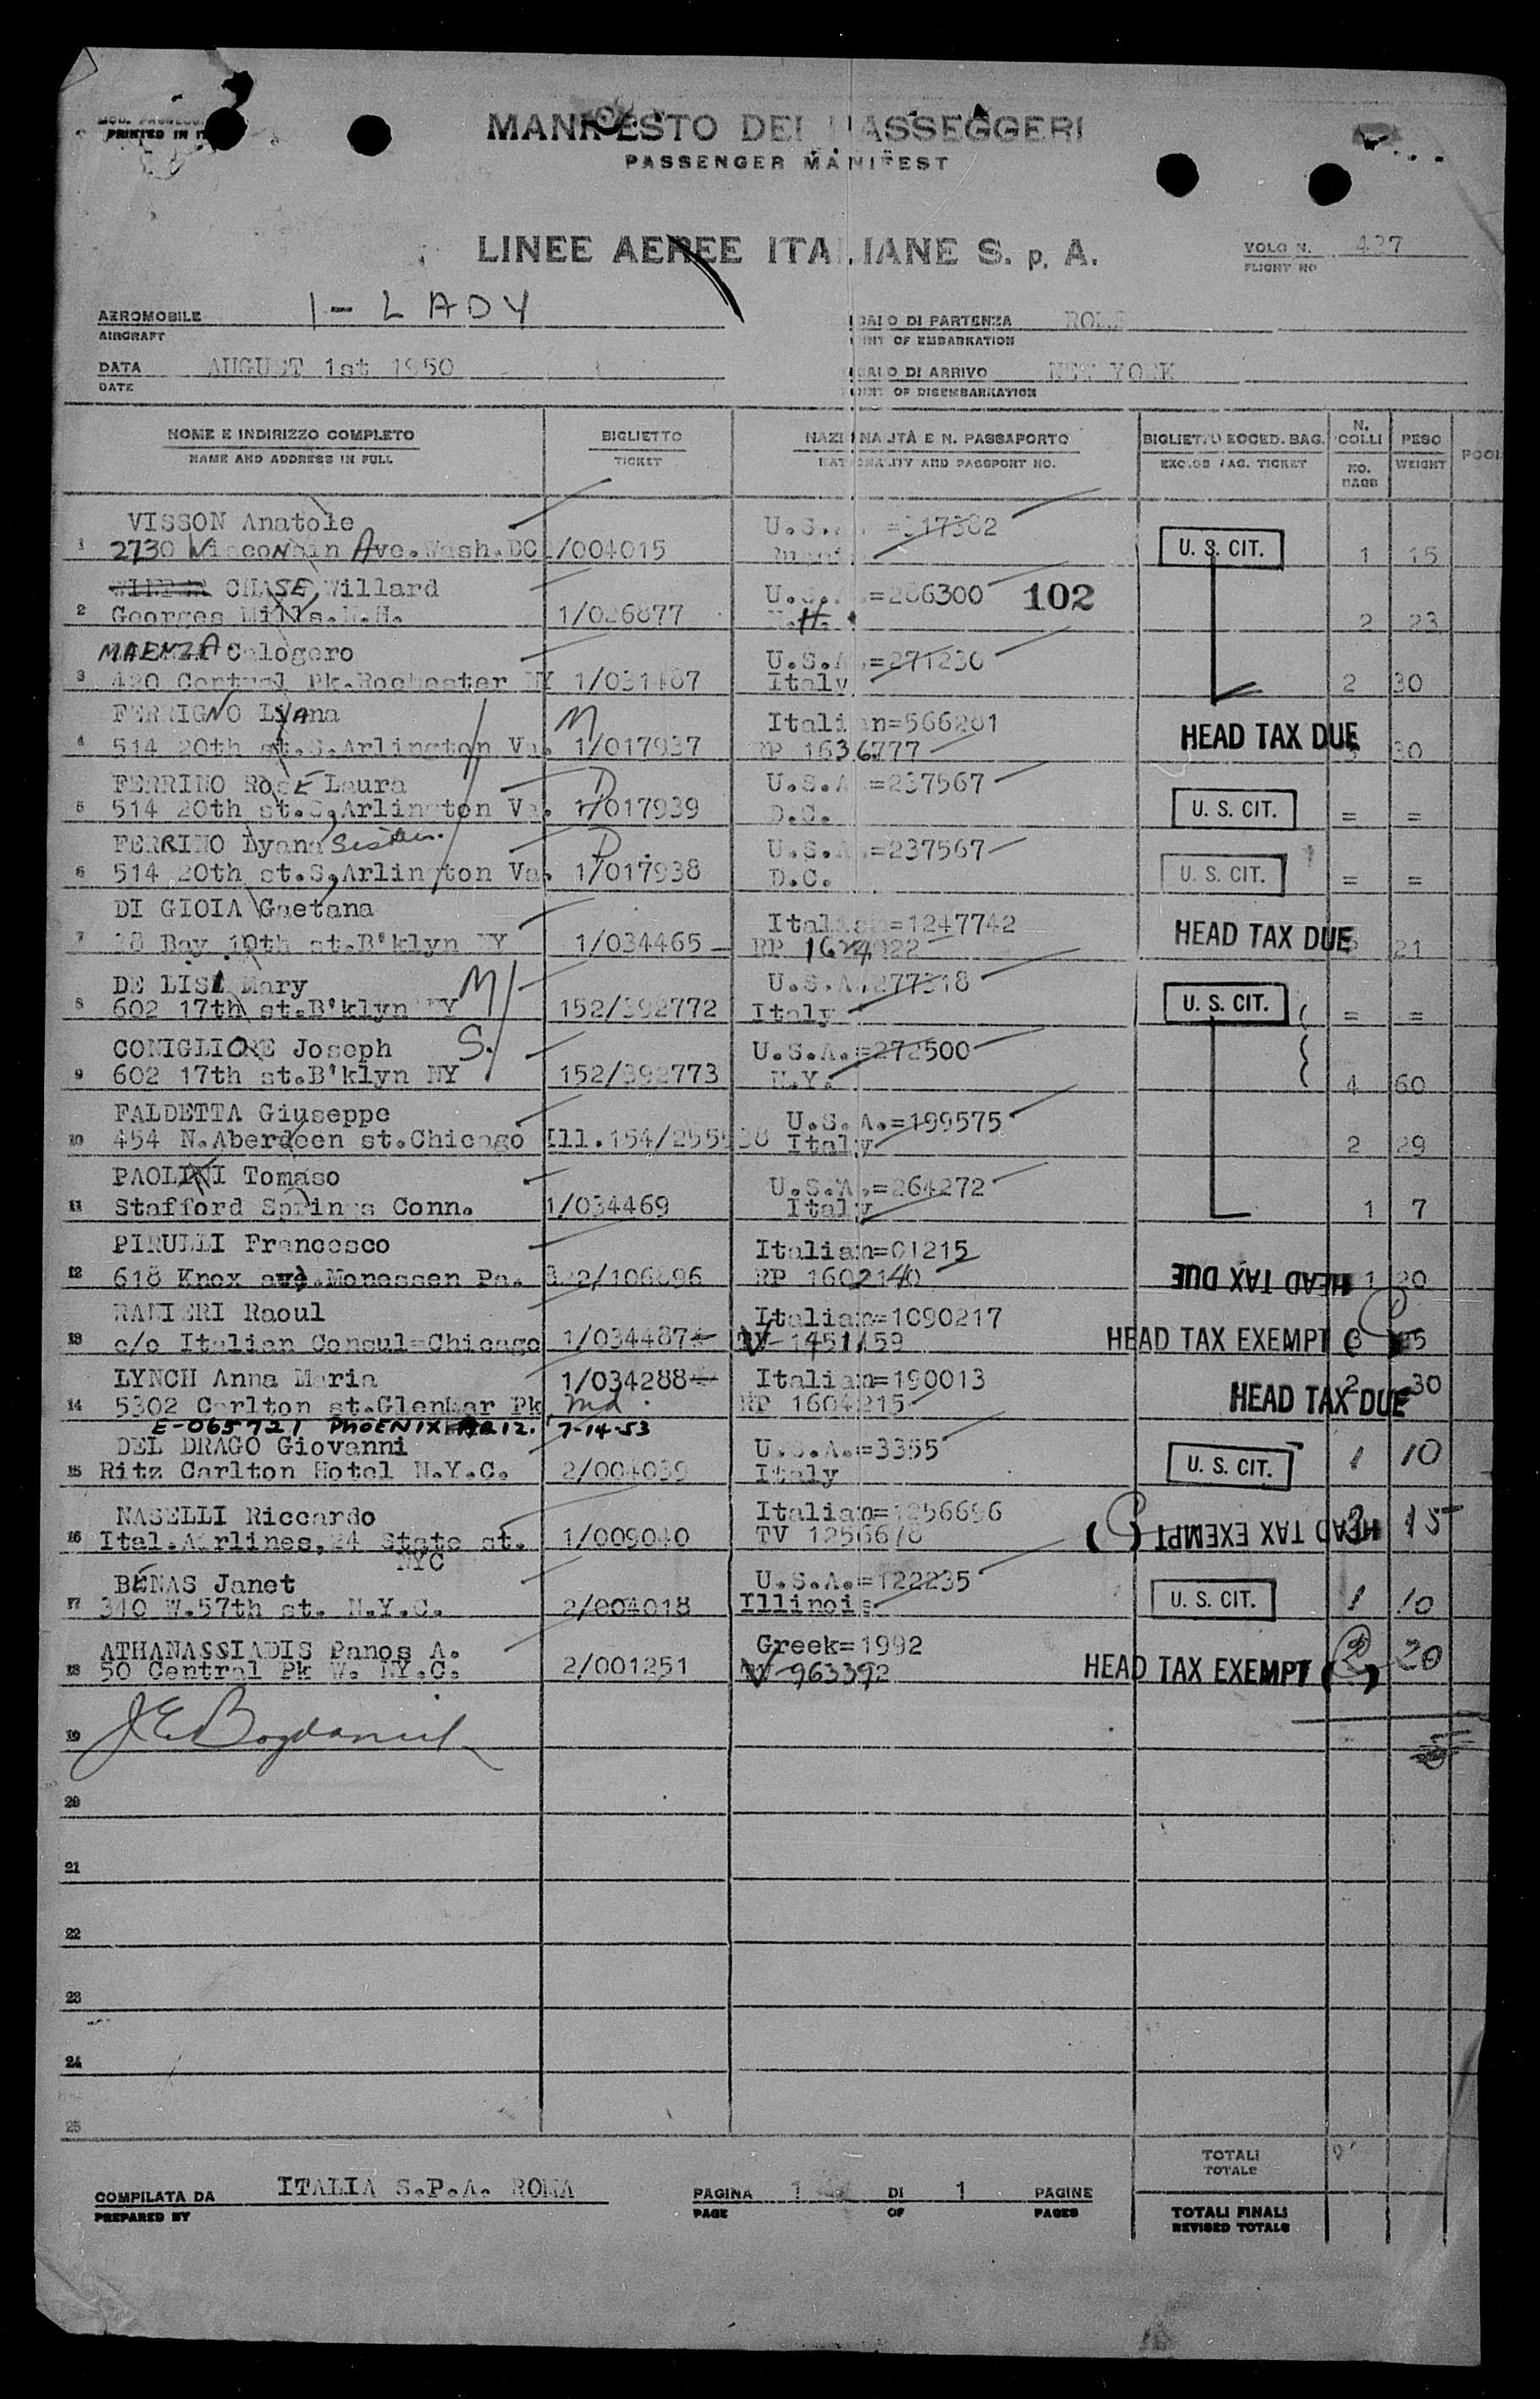 PRINTED IN
MANIFESTO DEI PASSEGGERI
PASSENGER MANIFEST
LINEE AEREE ITALIANE S. p. A.
VOLO N. 427
FLIGHT NO
AEROMOBILE I-LADY
AIRCRAFT
SCALO DI PARTENZA ROMA
POINT OF EMBARKATION
DATA AUGUST 1st 1950
DATE
SCALO DI ARRIVO NEW YORK
POINT OF DISEMBARKATION
NOME E INDIRIZZO COMPLETO BIGLIETTO NAZIONALITÀ E N. PASSAPORTO BIGLIETTO ECCED. BAG. N. COLLI PESO POOL
NAME AND ADDRESS IN FULL TICKET NATIONALITY AND PASSPORT NO. EXCESS BAG. TICKET NO. BAGS WEIGHT
VISSON Anatole U.S.A. =317382
1 2730 Wisconsin Ave.Wash.DC 1/004015 U. S. CIT. 1 15
CHASE, Willard U.S.A.=206300 102
2 Georges Mills.N.H. 1/026877 N.H. 2 23
MAENZA Calogero U.S.A.=271230
3 420 Central Pk.Rochester NY 1/031487 Italy 2 30
FERRIGNO Lyana M Italian=566281
4 514 20th st.S.Arlington Va. 1/017937 RP 1636777 HEAD TAX DUE 30
FERRINO ROSE Laura D U.S.A.=237567
5 514 20th st.S,Arlington Va. 1/017939 D.C. U. S. CIT. = =
FERRINO Dyana Sister. D. U.S.A.=237567
6 514 20th st.S,Arlington Va. 1/017938 D.C. U. S. CIT. = =
DI GIOIA Gaetana Italian=1247742
7 18 Bay 10th st.B'klyn NY 1/034465 RP HEAD TAX DUE 21
DE LISI Mary M U.S.A.=277318
8 602 17th st.B'klyn NY 152/392772 Italy U. S. CIT. = =
CONIGLIORE Joseph S. U.S.A.=272500
9 602 17th st.B'klyn NY 152/392773 N.Y. 4 60
FALDETTA Giuseppe U.S.A.=199575
10 454 N.Aberdeen st.Chicago Ill.154/255538 Italy 2 29
PAOLINI Tomaso U.S.A.=264272
11 Stafford Springs Conn. 1/034469 Italy 1 7
PIRULLI Francesco Italian=01215
12 618 Knox ave.Monessen Pa. 322/106896 RP 1602140 HEAD TAX DUE 1 20
RANIERI Raoul Italian=1090217
13 c/o Italian Consul=Chicago 1/034487 V 1451159 HEAD TAX EXEMPT ( 3
LYNCH Anna Maria 1/034288 Italian=190013
14 5302 Carlton st.Glenmar Pk Md. RP 1604215 HEAD TAX DUE 2 30
E-065721 PHOENIX ARIZ. 7-14-53
DEL DRAGO Giovanni U.S.A.=3355
15 Ritz Carlton Hotel N.Y.C. 2/004039 Italy U. S. CIT. 1 10
NASELLI Riccardo Italian=1256696
16 Ital.Airlines,24 State st. 1/009040 TV 1256678 HEAD TAX EXEMPT 3 15
NYC
BENAS Janet U.S.A.=122235
17 340 W.57th st. N.Y.C. 2/004018 Illinois U. S. CIT. 1 10
ATHANASSIADIS Panos A. Greek=1992
18 50 Central Pk W. NY.C. 2/001251 V 963392 HEAD TAX EXEMPT (2) 20
19
20
21
22
23
24
25
TOTALI
TOTALS
COMPILATA DA ITALIA S.P.A. ROMA PAGINA 1 DI 1 PAGINE
PREPARED BY PAGE OF PAGES
TOTALI FINALI
REVISED TOTALS